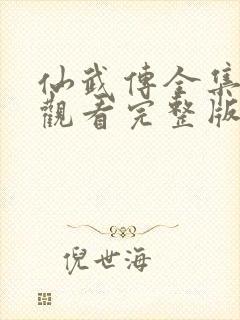 仙武傳全集
觀看完整版
倪世海